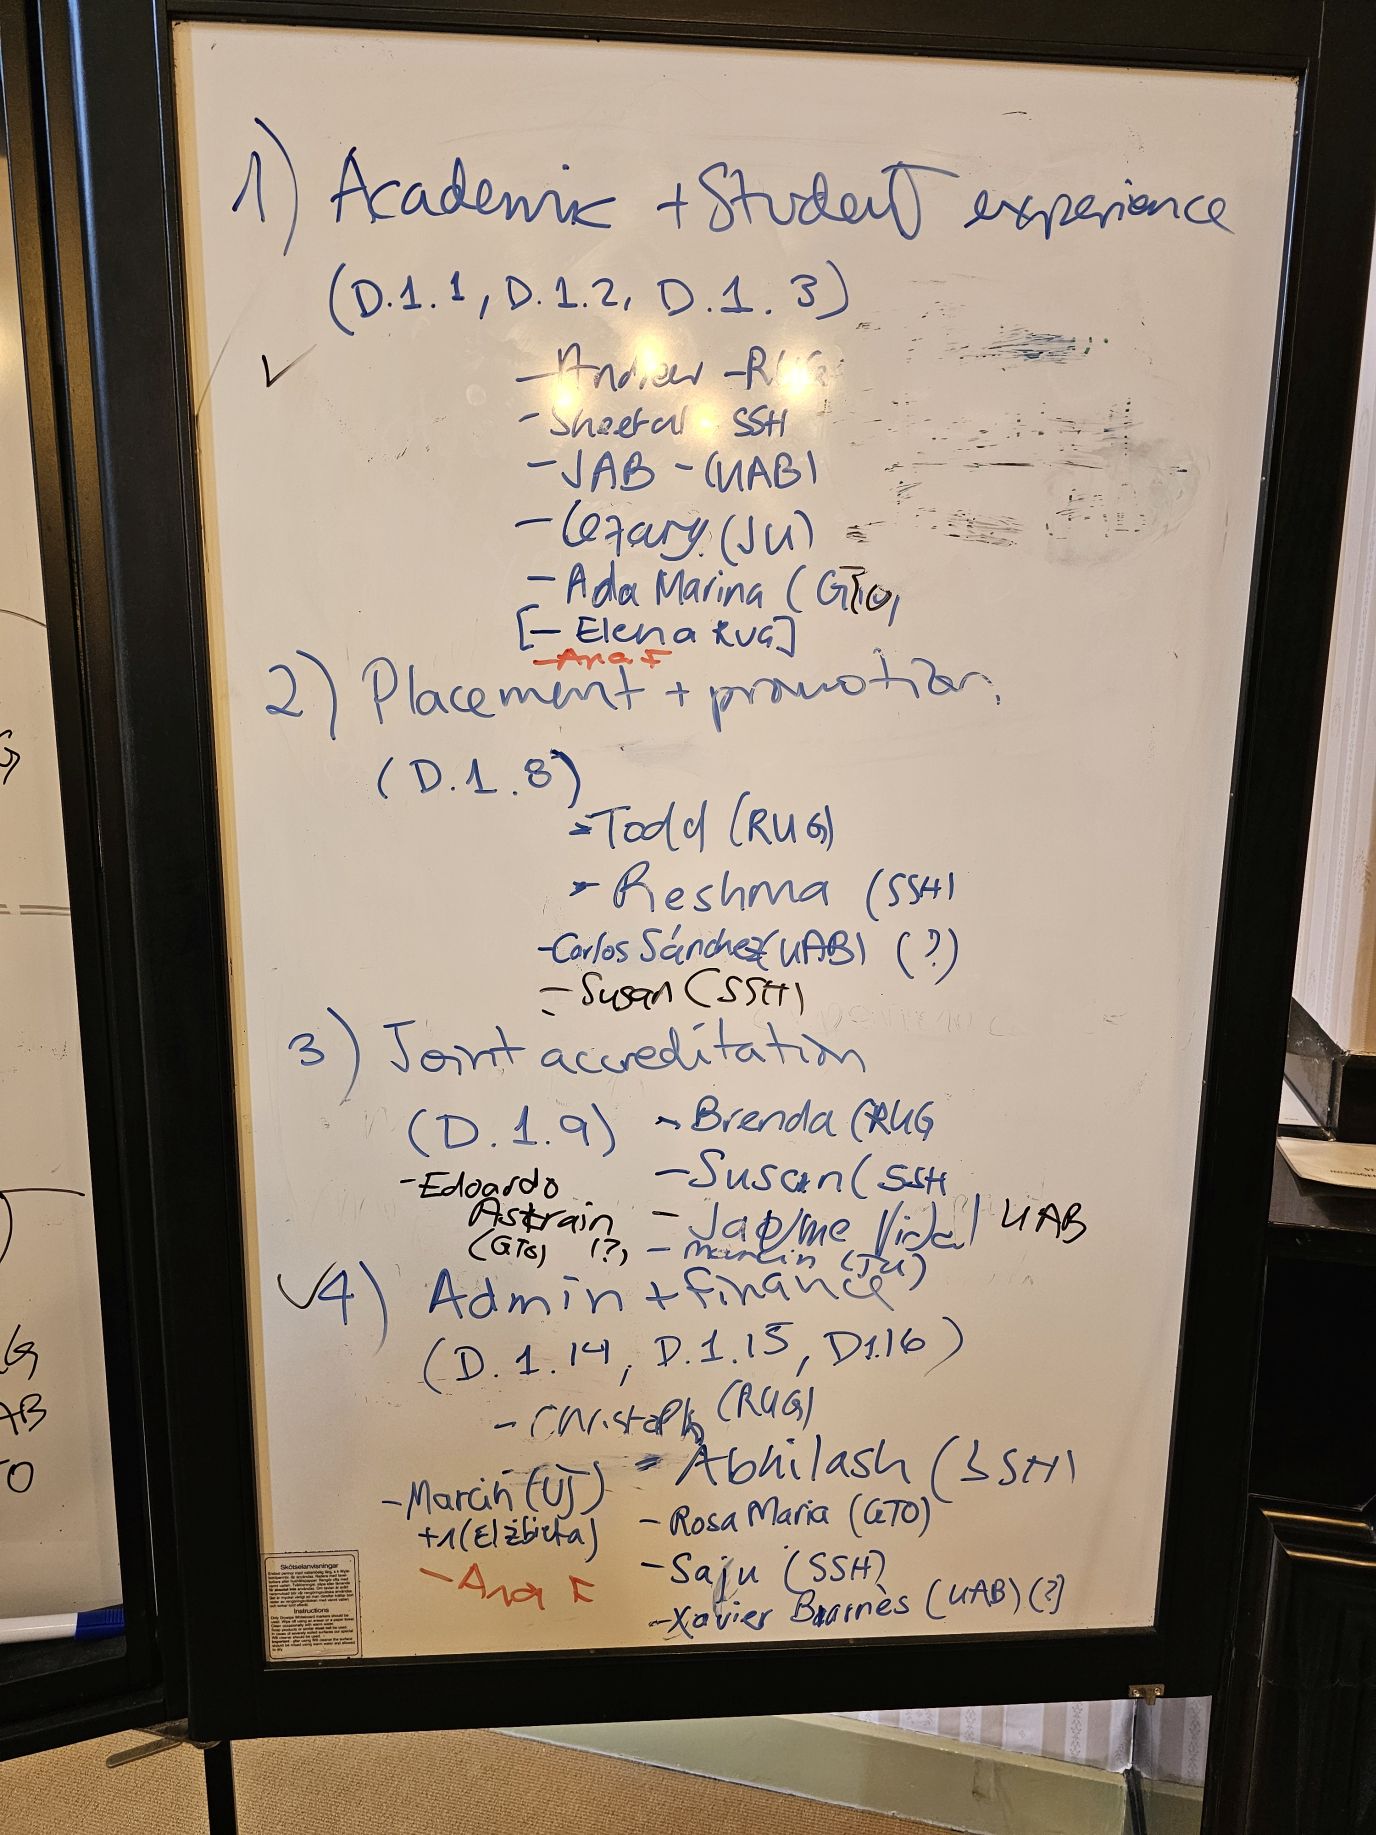 1) Academic + Student experience
(D.1.1, D.1.2, D.1.3)
✓
- Andrew - RUG
- Sheetal SSH
- JAB - (UAB)
- Cezary (JU)
- Ada Marina (GTO)
[- Elena RUG]
- Ana F
2) Placement + promotion
(D.1.8)
- Todd (RUG)
- Reshma (SSH)
- Carlos Sánchez (UAB) (?)
- Susan (SSH)
3) Joint accreditation
(D.1.9)
- Brenda (RUG
- Susan (SSH
- Jaume Vidal UAB
- Marcin (JU)
- Edoardo
Astrain
(GTO) (?)
✓ 4) Admin + finance
(D.1.14, D.1.15, D1.16)
- Christoph (RUG)
- Abhilash (SSH)
- Marcin (UJ)
+1 (Elżbieta)
- Ana F
- Rosa Maria (GTO)
- Saju (SSH)
- Xavier Barnès (UAB) (?)
Skötselanvisningar
Instructions
G
AB
TO